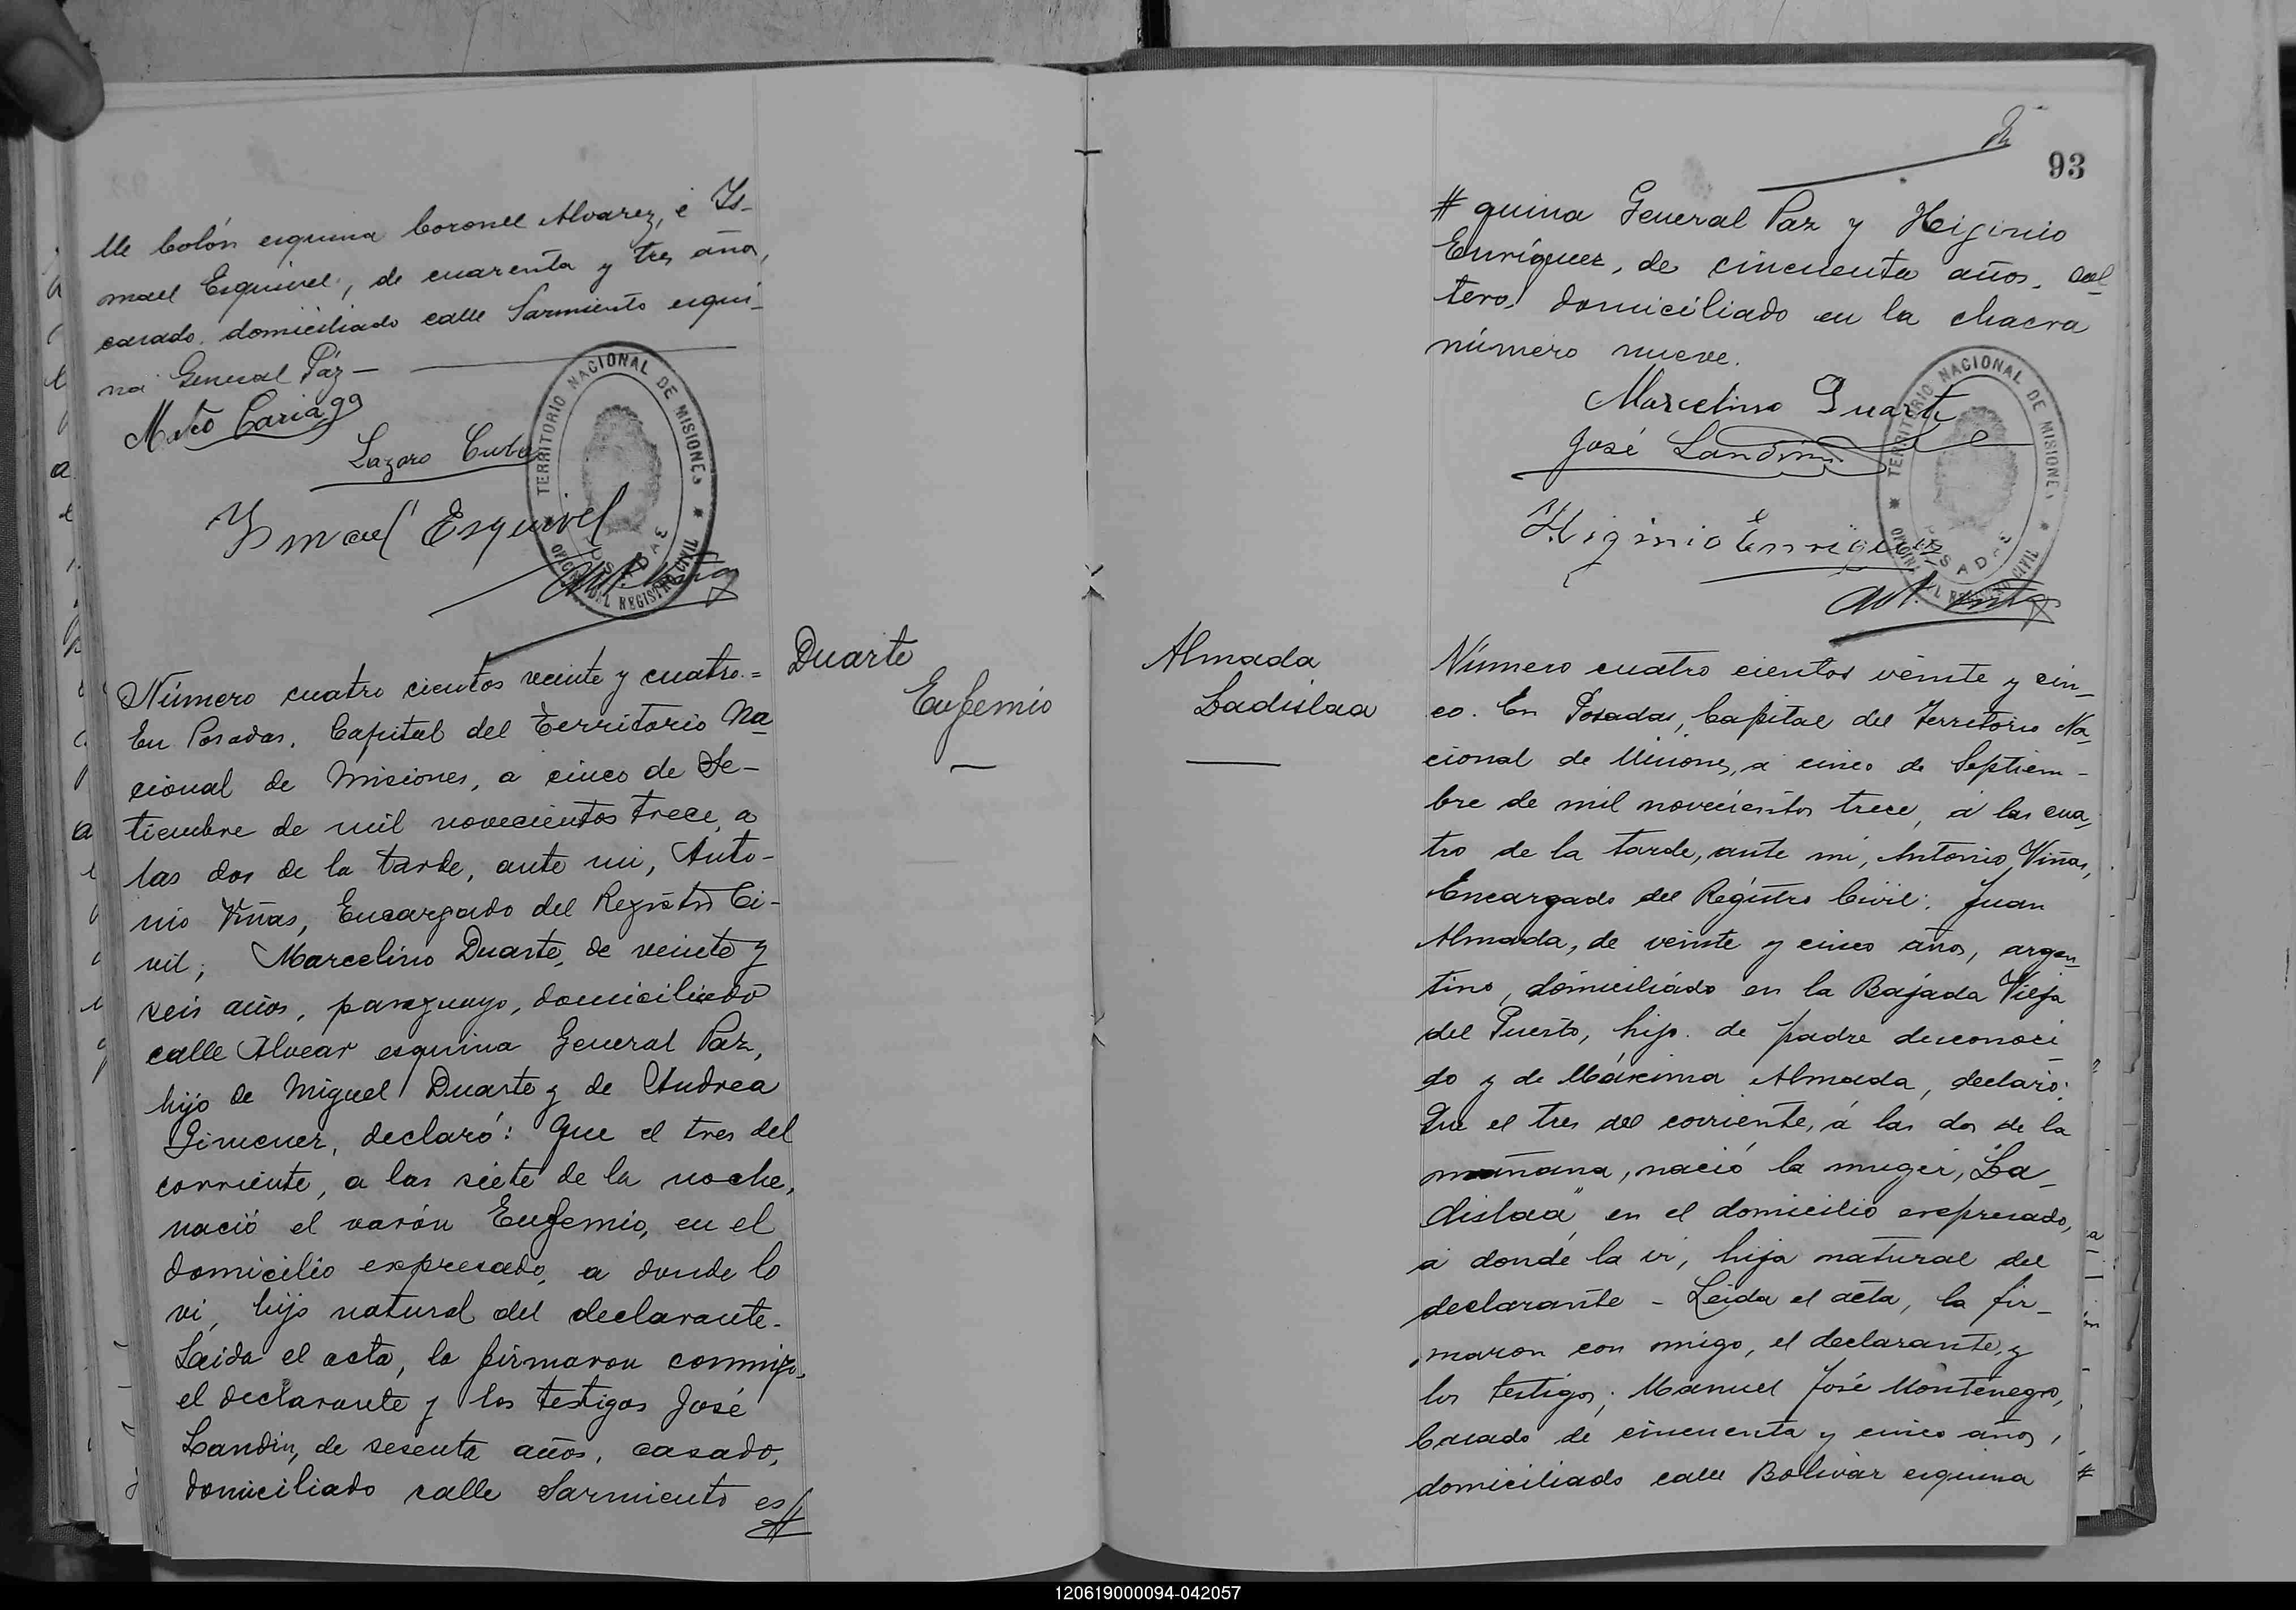 lle Colón esquina Coronel Alvarez, é Is-
mael Esquivel, de cuarenta y tres años,
casado, domiciliado calle Sarmiento esqui-
na General Páz —
Lazaro
Ismael Esquivel
TERRITORIO NACIONAL DE MISIONES
OFICINA DEL REGISTRO CIVIL
POSADAS
Duarte
Eufemio
Número cuatro cientos veinte y cuatro.=
En Posadas, Capital del Territorio Na
cional de Misiones, a cinco de Se-
tiembre de mil novecientos trece, a
las dos de la tarde, ante mi, Anto-
nio Viñas, Encargado del Registro Ci-
vil; Marcelino Duarte, de veinte y
seis años, paraguayo, domiciliado
calle Alvear esquina General Paz,
hijo de Miguel Duarte y de Andrea
Gimenez, declaró: Que el tres del
corriente, a las siete de la noche,
nació el varón Eufemio, en el
domicilio expresado, a donde lo
vi, hijo natural del declarante.
Leida el acta, la firmaron conmigo,
el declarante y los testigos José
Landin, de sesenta años, casado,
domiciliado calle Sarmiento es#
93
# quina General Paz y Higinio
Enríquez, de cincuenta años, sol
tero, domiciliado en la chacra
número nueve.
Marcelino Duarte
José Landin
Higinio Enriquez
TERRITORIO NACIONAL DE MISIONES
OFICINA DEL REGISTRO CIVIL
POSADAS
Almada
Ladislaa
Número cuatro cientos veinte y cin-
co. En Posadas, Capital del Territorio Na,
cional de Misiones, a cinco de Septiem-
bre de mil novecientos trece, á las cua,
tro de la tarde, ante mi, Antonio Viñas,
Encargado del Registro Civil; Juan
Almada, de veinte y cinco años, argen-
tino, domiciliado en la Bajada Vieja
del Puerto, hijo de padre desconoci-
do y de Máxima Almada, declaró:
Que el tres del corriente, á las dos de la
mañana, nació la muger, "La-
dislaa" en el domicilio expresado,
á donde la vi, hija natural del
declarante - Leida el acta, la fir-
maron con migo, el declarante, y
los testigos; Manuel José Montenegro,
Casado de cincuenta y cinco años,
domiciliado calle Bolivar esquina #
120619000094-042057